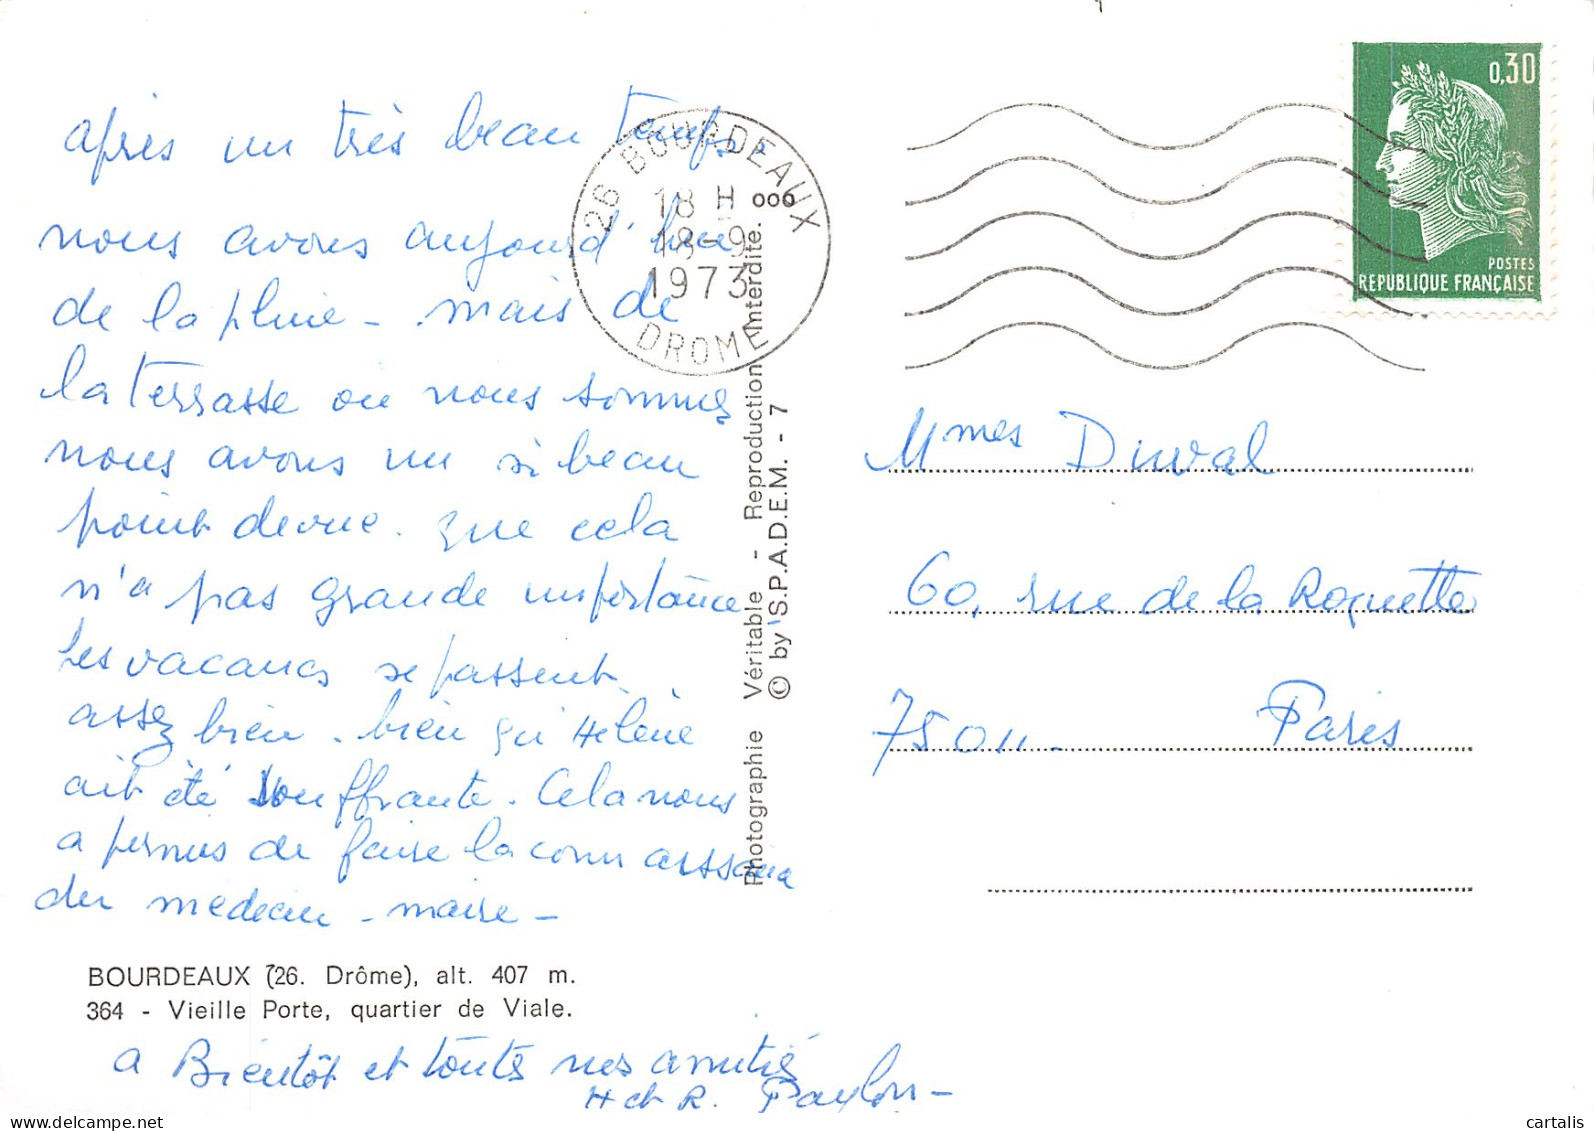 après un très beau temps.
nous avons aujourd'hui
de la pluie - mais de
la terrasse où nous sommes
nous avons un si beau
point de vue. que cela
n'a pas grande importance
Les vacances se passent
assez bien. bien qu'Hélène
ait été souffrante. Cela nous
a permis de faire la connaissance
du médecin - maire -
BOURDEAUX (26. Drôme), alt. 407 m.
364 - Vieille Porte, quartier de Viale.
a Bientôt et toutes nos amitiés
H et R.
26 BOURDEAUX
18 H 000
18-9
1973
DROME
Photographie Véritable - Reproduction Interdite.
© by S.P.A.D.E.M. - 7
0,30
POSTES
REPUBLIQUE FRANÇAISE
Mmes Duval
60, rue de la Roquette
75011. Paris
cartalis